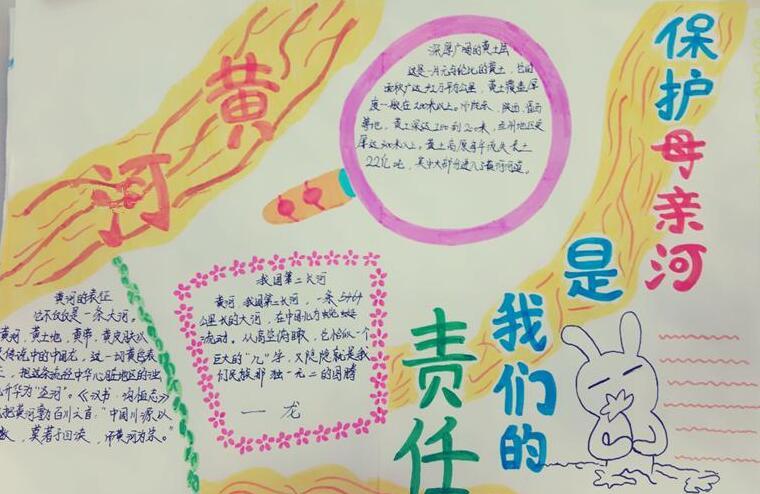 黄
河
保护母亲河
是
我们的
责任
深厚广阔的黄土层
这是一片无与伦比的黄土，它的
面积广达42万平方公里，黄土覆盖厚
度一般在200米以上。陕西
等地，黄土深达100到200米，兰州地区更
厚达300米以上。黄土高原每年流失表土
22亿吨，其中大部分进入了黄河河道。
我国第二长河
黄河 我国第二长河，一条5464
公里长的大河，在中国北方蜿蜒
流动。从高空俯瞰，它恰似一个
巨大的“几”字，又隐隐就是我
们民族那独一无二的图腾
一龙
黄河的表征
它不仅仅是一条大河。
黄河，黄土地，黄帝，黄皮肤以
传说中的中国龙，这一切黄色表
把这条流经中华心脏地区的
升华为“圣河”。《汉书·沟恤志》
把黄河尊为百川之首：“中国川源以
数，莫若于四渎，而黄河为宗。”